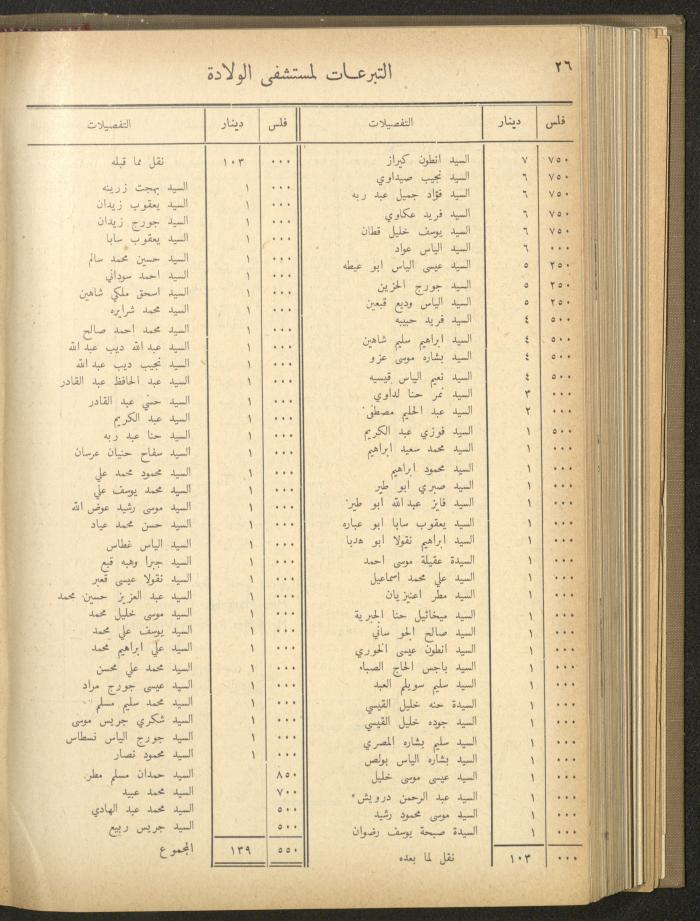 ٢٦
التبرعات لمستشفى الولادة
فلس دينار التفصيلات
٧٥٠ ٧ السيد انطون كيراز
٧٥٠ ٦ السيد نجيب صيداوي
٧٥٠ ٦ السيد فؤاد جميل عبد ربه
٧٥٠ ٦ السيد فريد عكاوي
٧٥٠ ٦ السيد يوسف خليل قطان
٠٠٠ ٦ السيد الياس عواد
٢٥٠ ٥ السيد عيسى الياس ابو عيطه
٢٥٠ ٥ السيد جورج الحزين
٢٥٠ ٥ السيد الياس وديع قبعين
٥٠٠ ٤ السيد فريد حبيبه
٥٠٠ ٤ السيد ابراهيم سليم شاهين
٥٠٠ ٤ السيد بشاره موسى عزو
٥٠٠ ٤ السيد نعيم الياس قيسيه
٠٠٠ ٣ السيد نمر حنا لداوي
٠٠٠ ٢ السيد عبد الحليم مصطفى
٥٠٠ ١ السيد فوزي عبد الكريم
٠٠٠ ١ السيد محمد سعيد ابراهيم
٠٠٠ ١ السيد محمود ابراهيم
٠٠٠ ١ السيد صبري ابو طير
٠٠٠ ١ السيد فايز عبد الله ابو طير
٠٠٠ ١ السيد يعقوب سابا ابو عباره
٠٠٠ ١ السيد ابراهيم نقولا ابو هدبا
٠٠٠ ١ السيدة عقيلة موسى احمد
٠٠٠ ١ السيد علي محمد اسماعيل
٠٠٠ ١ السيد مطر اعنيزيان
٠٠٠ ١ السيد ميخائيل حنا الجبرية
٠٠٠ ١ السيد صالح الجو ساني
٠٠٠ ١ السيد انطون عيسى الخوري
٠٠٠ ١ السيد باجس الحاج الصباء
٠٠٠ ١ السيد سليم سويلم العبد
٠٠٠ ١ السيدة حنه خليل القيسي
٠٠٠ ١ السيد جوده خليل القيسي
٠٠٠ ١ السيد سليم بشاره المصري
٠٠٠ ١ السيد بشاره الياس بولص
٠٠٠ ١ السيد عيسى موسى خليل
٠٠٠ ١ السيد عبد الرحمن درويش
٠٠٠ ١ السيد موسى محمود رشيد
٠٠٠ ١ السيدة صبحة يوسف رضوان
٠٠٠ ١٠٣ نقل لما بعده
فلس دينار التفصيلات
٠٠٠ ١٠٣ نقل مما قبله
٠٠٠ ١ السيد بهجت زرينه
٠٠٠ ١ السيد يعقوب زيدان
٠٠٠ ١ السيد جورج زيدان
٠٠٠ ١ السيد يعقوب سابا
٠٠٠ ١ السيد حسين محمد سالم
٠٠٠ ١ السيد احمد سوداني
٠٠٠ ١ السيد اسحق ملكي شاهين
٠٠٠ ١ السيد محمد شرايره
٠٠٠ ١ السيد محمد احمد صالح
٠٠٠ ١ السيد عبد الله ديب عبد الله
٠٠٠ ١ السيد نجيب ديب عبد الله
٠٠٠ ١ السيد عبد الحافظ عبد القادر
٠٠٠ ١ السيد حسني عبد القادر
٠٠٠ ١ السيد عبد الكريم
٠٠٠ ١ السيد حنا عبد ربه
٠٠٠ ١ السيد سفاح حنيان عرسان
٠٠٠ ١ السيد محمود محمد علي
٠٠٠ ١ السيد محمد يوسف علي
٠٠٠ ١ السيد موسى رشيد عوض الله
٠٠٠ ١ السيد حسن محمد عياد
٠٠٠ ١ السيد الياس غطاس
٠٠٠ ١ السيد جبرا وهبه قبع
٠٠٠ ١ السيد نقولا عيسى قعبر
٠٠٠ ١ السيد عبد العزيز حسين محمد
٠٠٠ ١ السيد موسى خليل محمد
٠٠٠ ١ السيد يوسف علي محمد
٠٠٠ ١ السيد علي ابراهيم محمد
٠٠٠ ١ السيد محمد علي محسن
٠٠٠ ١ السيد عيسى جورج مراد
٠٠٠ ١ السيد محمد سليم مسلم
٠٠٠ ١ السيد شكري جريس موسى
٠٠٠ ١ السيد جورج الياس نسطاس
٠٠٠ ١ السيد محمود نصار
٨٥٠ السيد حمدان مسلم مطر
٧٠٠ السيد محمد عبيد
٥٠٠ السيد محمد عبد الهادي
٥٠٠ السيد جريس ربيع
٥٥٠ ١٣٩ المجموع